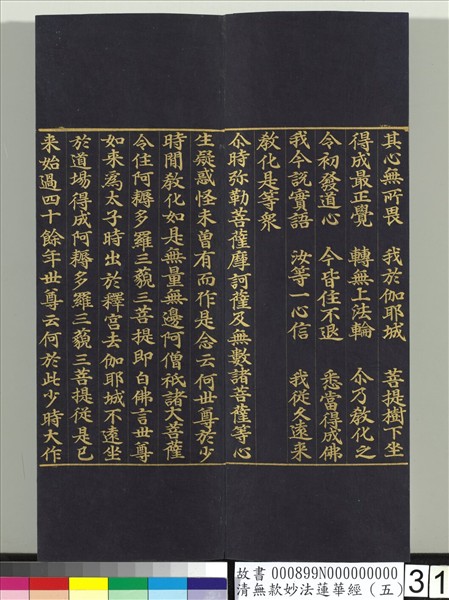 其心無所畏　我於伽耶城　菩提樹下坐
得成最正覺　轉無上法輪　尒乃教化之
令初發道心　今皆住不退　悉當得成佛
我今説實語　汝等一心信　我從久遠來
教化是等衆
尒時弥勒菩薩摩訶薩及無數諸菩薩等心
生疑惑怪未曾有而作是念云何世尊於少
時間教化如是無量無邊阿僧祇諸大菩薩
令住阿耨多羅三藐三菩提即白佛言世尊
如来為太子時出於釋宫去伽耶城不遠坐
於道場得成阿耨多羅三藐三菩提從是已
来始過四十餘年世尊云何於此少時大作
故書 000899N000000000
清無款妙法蓮華經（五）
31